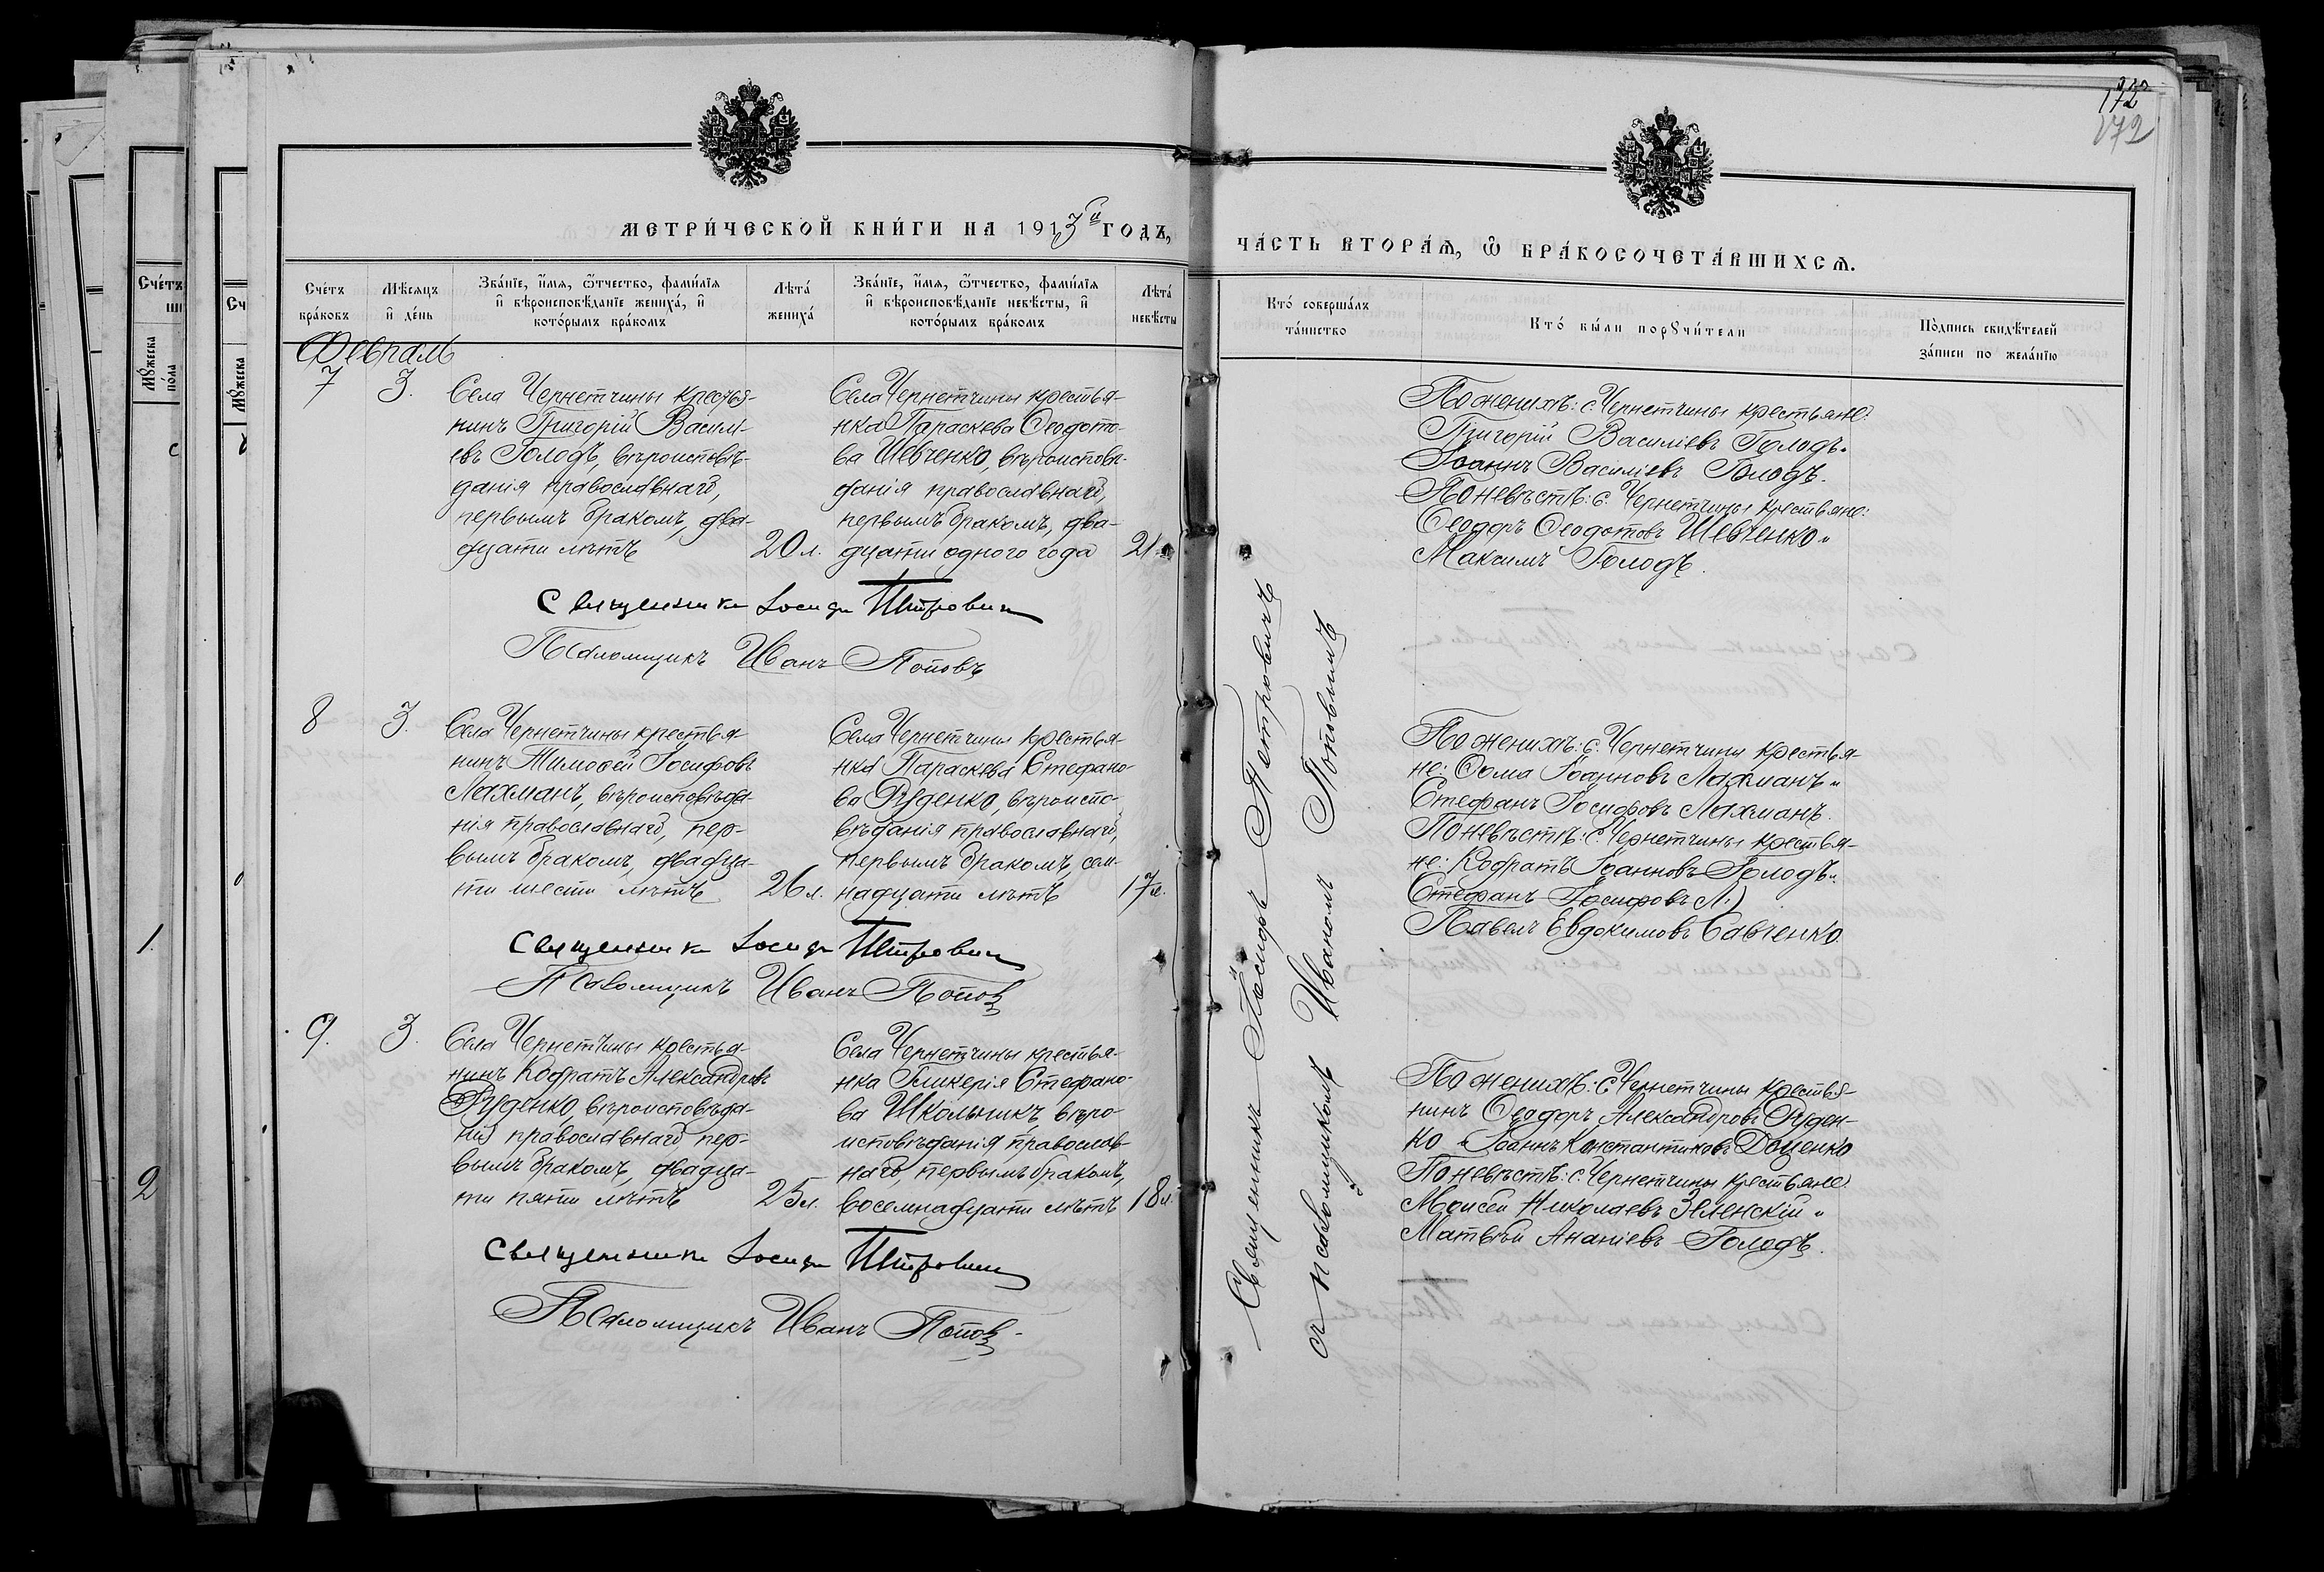 172
172
МЕТРИ́ЧЕСКОЙ КНИ́ГИ НА 1913й ГОДЪ,
ЧА́СТЬ ВТОРА́Ѧ, Ѽ БРА́КОСОЧЕТА́ВШИХСѦ.
Сче́тъ бра́ковъ
Мѣ́сяцъ и҆ де́нь
Зва́нїе, и҆́мѧ, ѻ҆́тчество, фами́лїѧ
и҆ вѣроисповѣ́данїе жениха́, и҆
кото́рымъ бра́комъ
Лѣта́ жениха́
Зва́нїе, и҆́мѧ, ѻ҆́тчество, фами́лїѧ
и҆ вѣроисповѣ́данїе невѣ́сты, и҆
кото́рымъ бра́комъ
Лѣта́ невѣ́сты
Кто́ соверша́лъ
та́инство
Кто́ бы́ли порꙋчи́тели
По́дпись свидѣ́телей
за́писи по жела́нїю
Февраль
7 3.
Села Чернетчины крестья-
нинъ Григорій Василі-
евъ Голодъ, вѣроисповѣ-
данія православнаго,
первымъ бракомъ, два-
дцати лѣтъ
20 л.
Села Чернетчины крестья-
нка Параскева Ѳеодото-
ва Шевченко, вѣроисповѣ-
данія православнаго,
первымъ бракомъ, два-
дцати одного года
21
Священникъ Іосифъ Петровичъ
Псаломщикъ Иванъ Поповъ
По женихѣ: с. Чернетчины крестьяне:
Григорій Василіевъ Голодъ и
Іоаннъ Василіевъ Голодъ.
По невѣстѣ: с. Чернетчины крестьяне:
Ѳеодоръ Ѳеодотовъ Шевченко и
Максимъ Голодъ.
8 3.
Села Чернетчины крестья-
нинъ Тимоѳей Іосифовъ
Лахманъ, вѣроисповѣда-
нія православнаго, пер-
вымъ бракомъ, двадца-
ти шести лѣтъ
26 л.
Села Чернетчины крестья-
нка Параскева Стефано-
ва Руденко, вѣроиспо-
вѣданія православнаго,
первымъ бракомъ, сем-
надцати лѣтъ
17 л.
Священникъ Іосифъ Петровичъ
Псаломщикъ Иванъ Поповъ
По женихѣ: с. Чернетчины крестья-
не: Ѳома Іоанновъ Лахманъ и
Стефанъ Іосифовъ Лахманъ.
По невѣстѣ: с. Чернетчины крестья-
не: Кодратъ Іоанновъ Голодъ и
Стефанъ Іосифовъ Л.)
Павелъ Евдокимовъ Савченко.
9. 3.
Села Чернетчины крестья-
нинъ Кодратъ Александровъ
Руденко, вѣроисповѣда-
нія православнаго, пер-
вымъ бракомъ, двадца-
ти пяти лѣтъ
25 л.
Села Чернетчины крестья-
нка Гликерія Стефано-
ва Школьникъ, вѣро-
исповѣданія православ-
наго, первымъ бракомъ,
восемнадцати лѣтъ
18 л.
Священникъ Іосифъ Петровичъ
Псаломщикъ Иванъ Поповъ
По женихѣ: с. Чернетчины крестья-
нинъ Ѳеодоръ Александровъ Руден-
ко и Іоаннъ Константиновъ Доценко
По невѣстѣ: с. Чернетчины крестьяне:
Моисей Николаевъ Зеленскій и
Матвѣй Ананіевъ Голодъ.
Священникъ Іосифъ Петровичъ
съ псаломщикомъ Иваномъ Поповымъ
Сче́тъ
Мꙋ́жеска по́ла
1.
2
Сч
Мꙋ́жеска